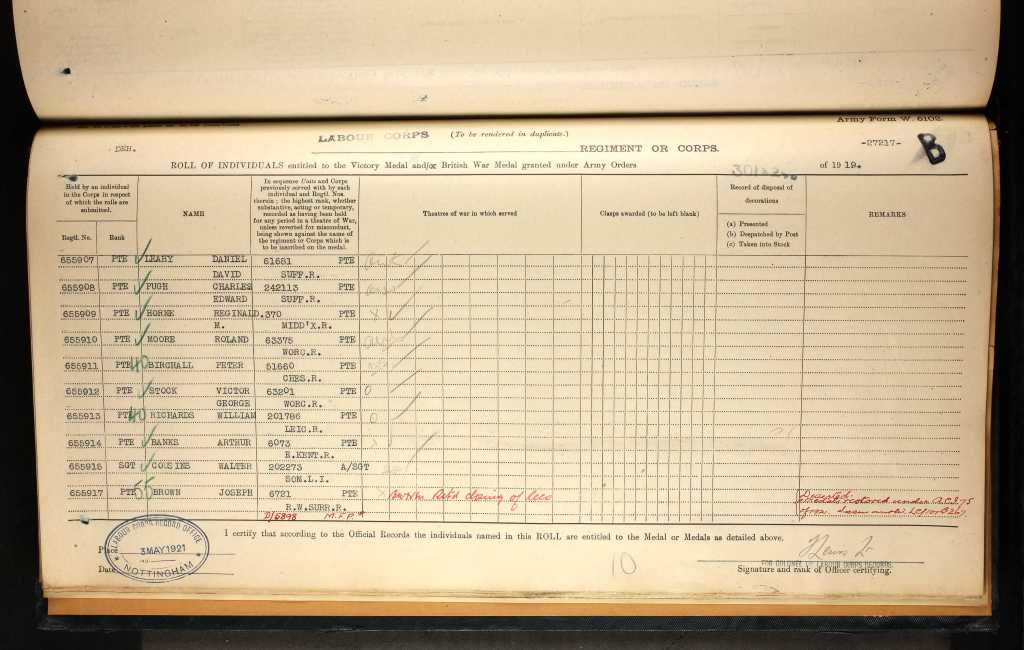 Army Form W. 5102.
LABOUR CORPS (To be rendered in duplicate.)
DEH. REGIMENT OR CORPS. -27217- B
ROLL OF INDIVIDUALS entitled to the Victory Medal and/or British War Medal granted under Army Orders of 1919.
Held by an individual in the Corps in respect of which the rolls are submitted.
Regtl. No. Rank
NAME
In sequence Units and Corps previously served with by each individual and Regtl. Nos. therein; the highest rank, whether substantive, acting or temporary, recorded as having been held for any period in a theatre of War, unless reverted for misconduct, being shown against the name of the regiment or Corps which is to be inscribed on the medal.
Theatres of war in which served
Clasps awarded (to be left blank)
Record of disposal of decorations
(a) Presented
(b) Despatched by Post
(c) Taken into Stock
REMARKS
655907 PTE LEAHY DANIEL 61681 PTE
DAVID SUFF.R.
655908 PTE PUGH CHARLES 242113 PTE
EDWARD SUFF.R.
655909 PTE HORNE REGINALD. 370 PTE X
M. MIDD'X.R.
655910 PTE MOORE ROLAND 63375 PTE
WORC.R.
655911 PTE 40 BIRCHALL PETER 51660 PTE
CHES.R.
655912 PTE STOCK VICTOR 63201 PTE O
GEORGE WORC.R.
655913 PTE 40 RICHARDS WILLIAM 201786 PTE O
LEIC.R.
655914 PTE BANKS ARTHUR 6073 PTE
E.KENT.R.
655915 SGT COUSINS WALTER 202273 A/SGT
SOM.L.I.
655917 PTE 55 BROWN JOSEPH 6721 PTE closing of
R.W.SURR.R.
D/5898 M.F.P.
Deserted.
Medals restored under A.C.I. 75
I certify that according to the Official Records the individuals named in this ROLL are entitled to the Medal or Medals as detailed above.
LABOUR CORPS RECORD OFFICE
3 MAY 1921
NOTTINGHAM
Place
Date
10
FOR COLONEL I/C LABOUR CORPS RECORDS.
Signature and rank of Officer certifying.